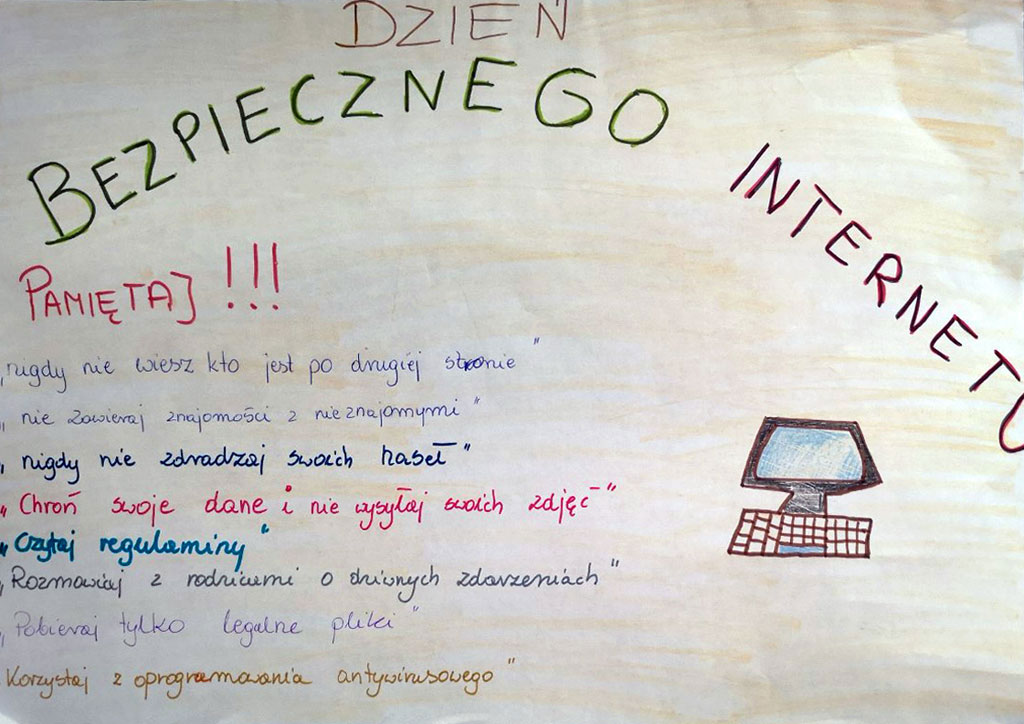 DZIEŃ
BEZPIECZNEGO
INTERNETU
PAMIĘTAJ !!!
„nigdy nie wiesz kto jest po drugiej stronie”
„nie zawieraj znajomości z nieznajomymi”
„nigdy nie zdradzaj swoich haseł”
„Chroń swoje dane i nie wysyłaj swoich zdjęć”
„Czytaj regulaminy”
„Rozmawiaj z rodzicami o dziwnych zdarzeniach”
„Pobieraj tylko legalne pliki”
Korzystaj z oprogramowania antywirusowego”